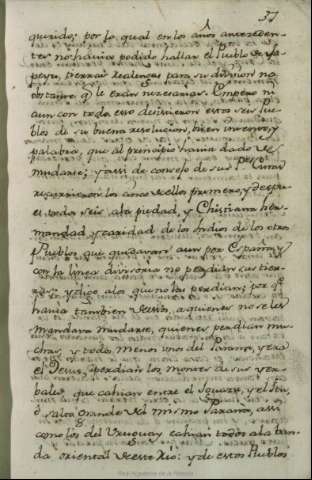 37
querido; por lo qual en los años anteceden-
tes no havia podido hallar el Pueblo de Ya-
peyu, tierras realengas para su division no
obstante q.e le eran necesarias. Empero ni
aun con todo esso desistieron estos seis Pue-
blos de su buena resolucion, bien
palabra, que al principio havia dado de
mudarse; y assi de consejo de sus Curas
recurrieron los cinco de ellos primero, y despu-
es todos seis ala piedad, y Christiana her-
mandad y caridad de los Indios de los otros
Pueblos que quedavan aun por España, y
con la linea divisoria no perdian sus tier-
ras; y digo ala que no las perdian; por q.e
havia tambien a quienes no se les
mandava mudarse, quienes perdian mu-
chas, y todos menos uno del Paranà, y era
el Jesus, perdian los montes de sus yer-
bales, que cahian entre el Yguazú, y el
ò salto grande del mismo Paranà, assi
como los del Uruguay cahian todos ala ban-
da oriental de este Rio: y de estos Pueblos